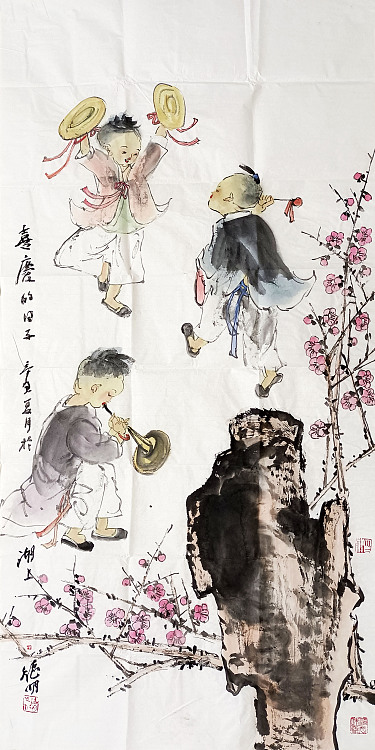 喜慶的日子
辛丑夏月於
湖上
張明